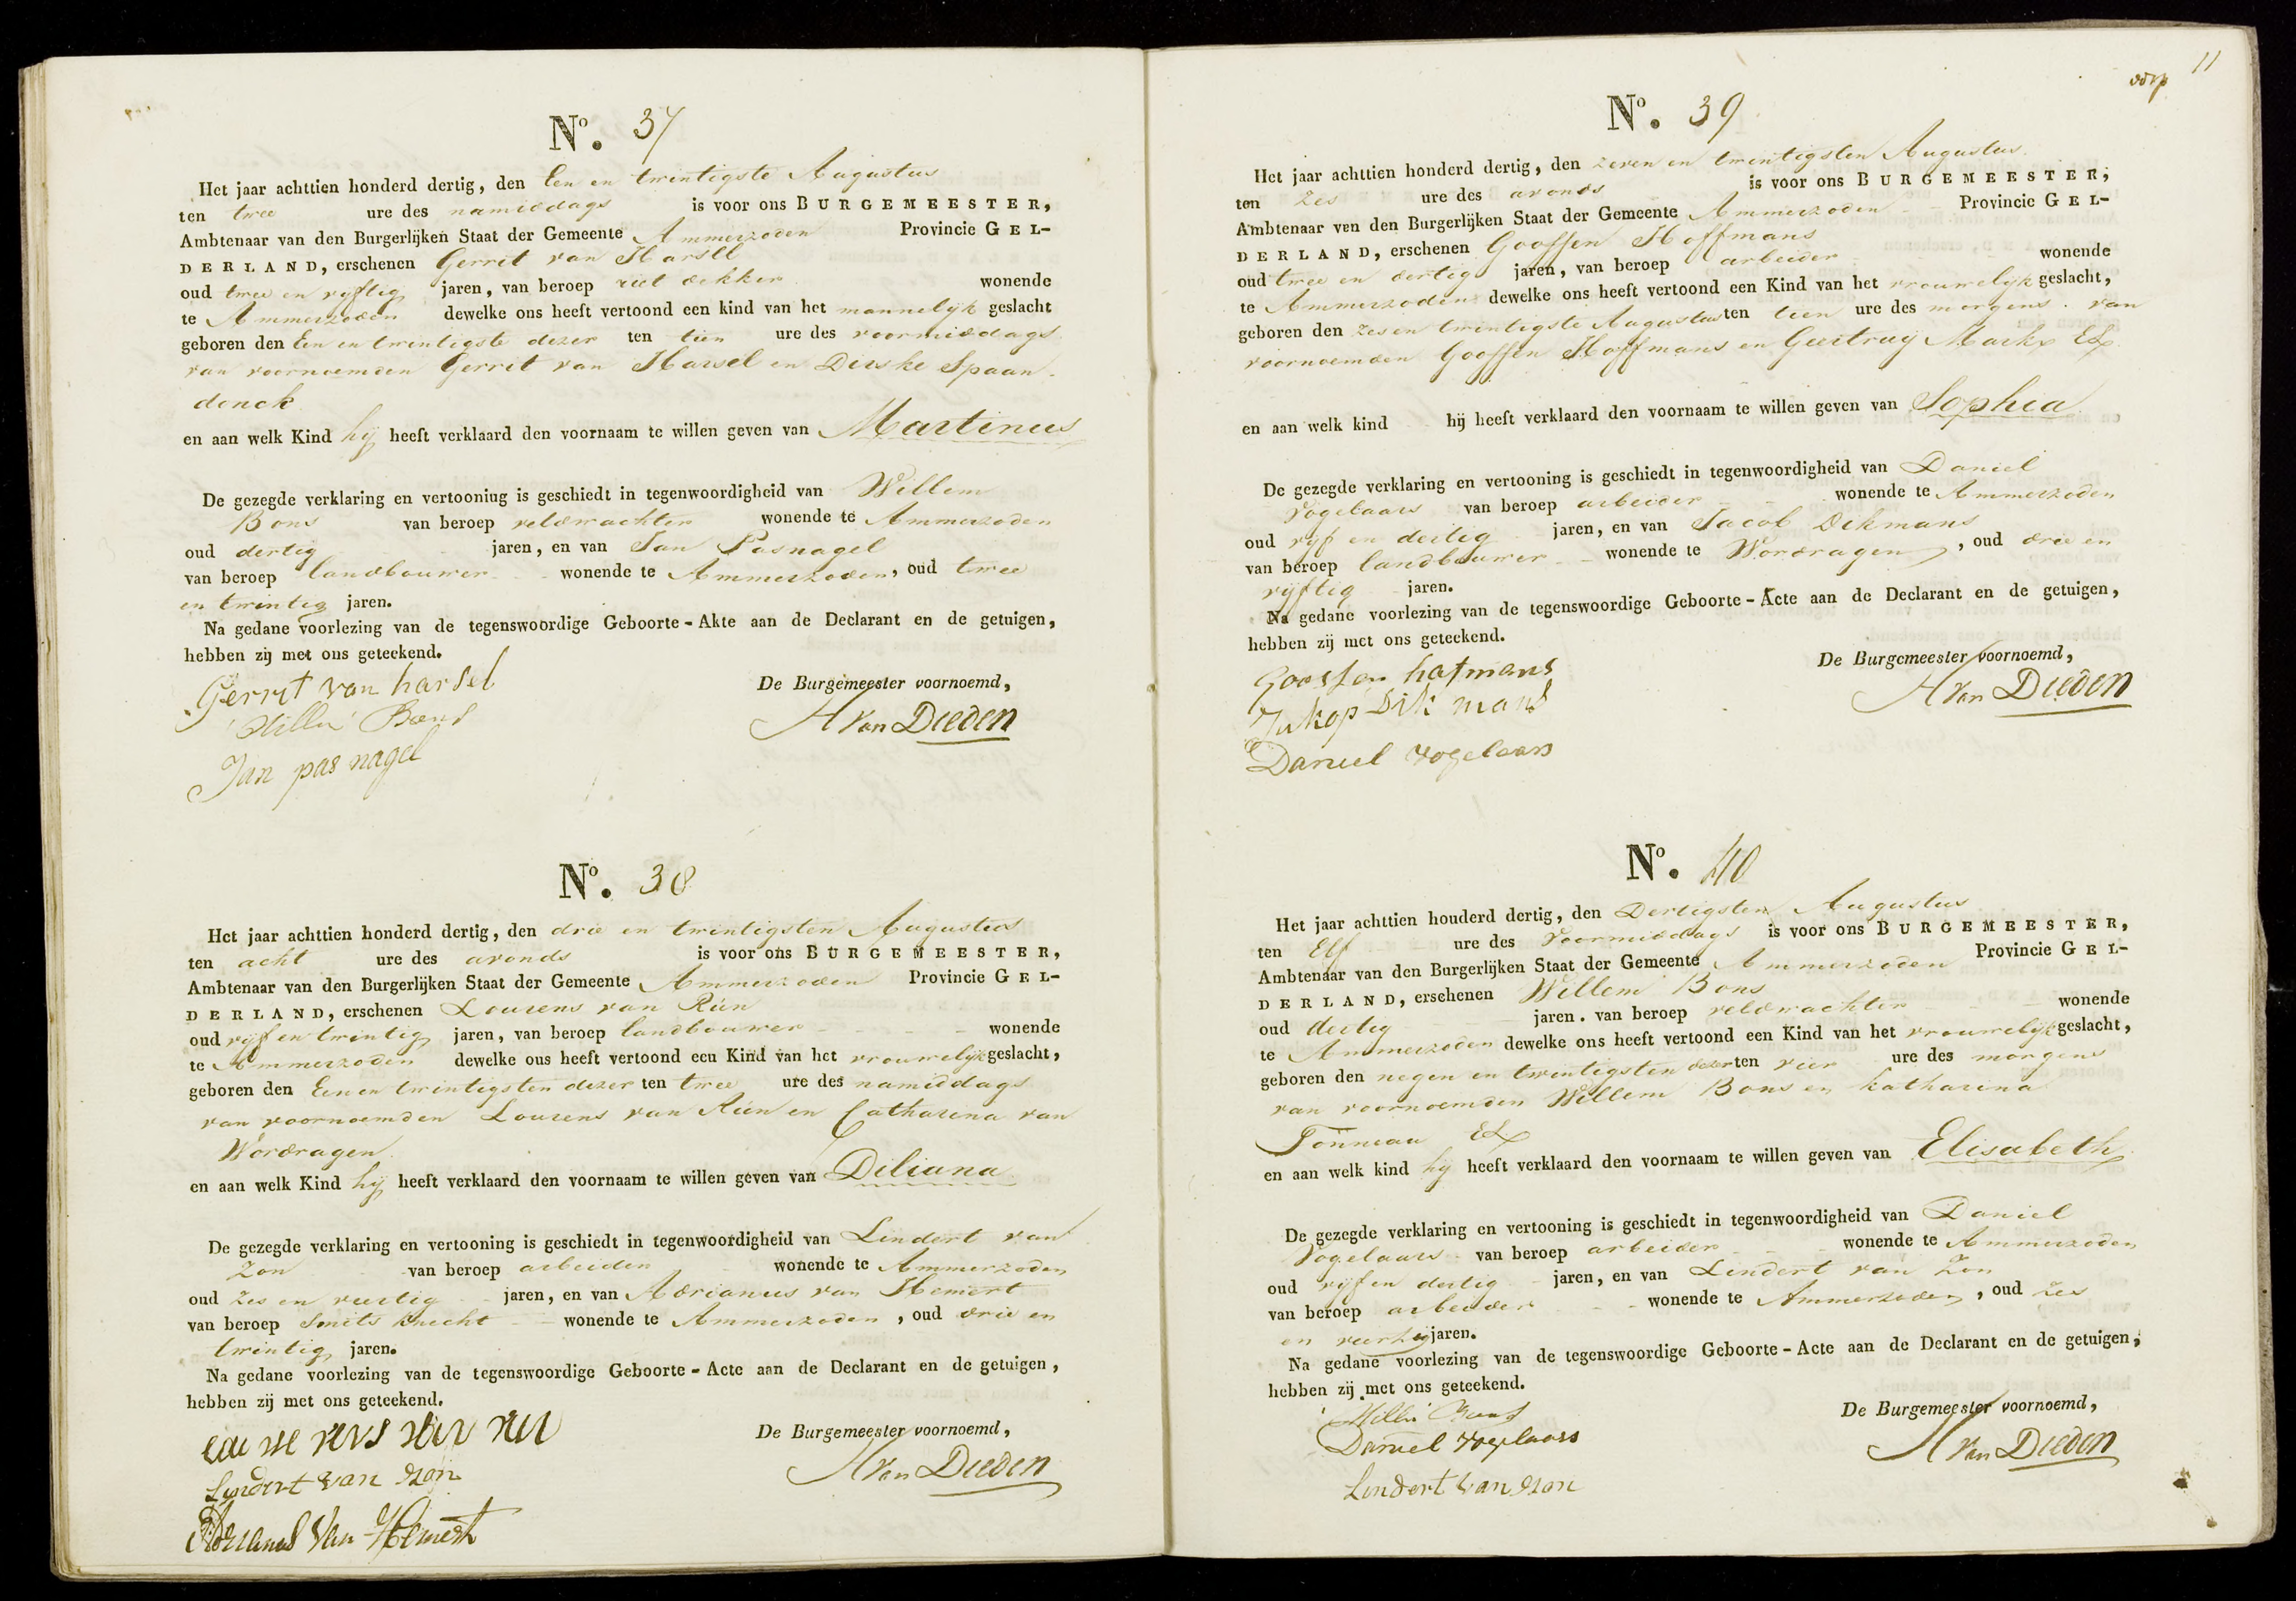 No. 37
Het jaar achttien honderd dertig, den Een en twintigste Augustus
ten twee ure des namiddags is voor ons BURGEMEESTER,
Ambtenaar van den Burgerlijken Staat der Gemeente Ammerzoden Provincie GEL-
DERLAND, erschenen Gerrit van Harsel
oud twee en vyftig jaren, van beroep riet dekker wonende
te Ammerzoden dewelke ons heeft vertoond een kind van het mannelijk geslacht
geboren den Een en twentigste dezer ten tien ure des voormiddags
van voornoemden Gerrit van Harsel en Dirske Spaan-
denck
en aan welk Kind hij heeft verklaard den voornaam te willen geven van Martinus
De gezegde verklaring en vertooning is geschiedt in tegenwoordigheid van Willem
Bons van beroep veldwachter wonende te Ammerzoden
oud dertig jaren, en van Jan Pasnagel
van beroep landbouwer wonende te Ammerzoden, oud twee
en twintig jaren.
Na gedane voorlezing van de tegenswoordige Geboorte-Akte aan de Declarant en de getuigen,
hebben zij met ons geteekend.
De Burgemeester voornoemd,
Gerrit van harsel
Willem Bons
Jan pas nagel
H Van Dieden
No. 38
Het jaar achttien honderd dertig, den drie en twintigsten Augustus
ten acht ure des avonds is voor ons BURGEMEESTER,
Ambtenaar van den Burgerlijken Staat der Gemeente Ammerzoden Provincie GEL-
DERLAND, erschenen Lourens van Rün
oud vijf en twintig jaren, van beroep landbouwer wonende
te Ammerzoden dewelke ons heeft vertoond een Kind van het vrouwelijk geslacht,
geboren den Een en twintigsten dezer ten twee ure des namiddags
van voornoemden Lourens van Rün en Catharina van
Wordragen
en aan welk Kind hij heeft verklaard den voornaam te willen geven van Diliana
De gezegde verklaring en vertooning is geschiedt in tegenwoordigheid van Lindert van
Zon van beroep arbeider wonende te Ammerzoden
oud zes en veertig jaren, en van Adrianus van Hemert
van beroep Smits knecht wonende te Ammerzoden, oud drie en
twintig jaren.
Na gedane voorlezing van de tegenswoordige Geboorte-Acte aan de Declarant en de getuigen,
hebben zij met ons geteekend.
De Burgemeester voornoemd,
Lindert van zon
Adrianus Van Hemert
H Van Dieden
11
dorp
No. 39
Het jaar achttien honderd dertig, den zeven en twintigsten Augustus
ten Zes ure des avonds is voor ons BURGEMEESTER,
Ambtenaar ven den Burgerlijken Staat der Gemeente Ammerzoden Provincie GEL-
DERLAND, erschenen Gooffen Hoffmans
oud twee en dertig jaren, van beroep arbeider wonende
te Ammerzoden dewelke ons heeft vertoond een Kind van het vrouwelijk geslacht,
geboren den zes en twintigste Augustus ten tien ure des morgens. van
voornoemden Gooffen Hoffmans en Geertruy Markx El.
en aan welk kind hij heeft verklaard den voornaam te willen geven van Sophia
De gezegde verklaring en vertooning is geschiedt in tegenwoordigheid van Daniel
Vogelaars van beroep arbeider wonende te Ammerzoden
oud vyf en dertig jaren, en van Jacob Dikmans
van beroep landbouwer wonende te Wordragen, oud drie en
vijftig jaren.
Na gedane voorlezing van de tegenswoordige Geboorte-Acte aan de Declarant en de getuigen,
hebben zij met ons geteekend.
De Burgemeester voornoemd,
Goossen hafmans
Jakop Dik mans
Daniel Vogelaars
H Van Dieden
No. 40
Het jaar achttien honderd dertig, den Dertigsten Augustus
ten Elf ure des Voormiddags is voor ons BURGEMEESTER,
Ambtenaar van den Burgerlijken Staat der Gemeente Ammerzoden Provincie GEL-
DERLAND, erschenen Willem Bons
oud dertig jaren. van beroep veldwachter wonende
te Ammerzoden dewelke ons heeft vertoond een Kind van het vrouwelijk geslacht,
geboren den negen en twintigsten dezer ten vier ure des morgens
van voornoemden Willem Bons en Katharina
Tonneau El
en aan welk kind hij heeft verklaard den voornaam te willen geven van Elisabeth
De gezegde verklaring en vertooning is geschiedt in tegenwoordigheid van Daniel
Vogelaars van beroep arbeider wonende te Ammerzoden
oud vijf en dertig jaren, en van Lindert van Zon
van beroep arbeider wonende te Ammerzoden, oud zes
en veertig jaren.
Na gedane voorlezing van de tegenswoordige Geboorte-Acte aan de Declarant en de getuigen,
hebben zij met ons geteekend.
De Burgemeester voornoemd,
Willem Bons
Daniel Vogelaars
Lendert van zon
H Van Dieden